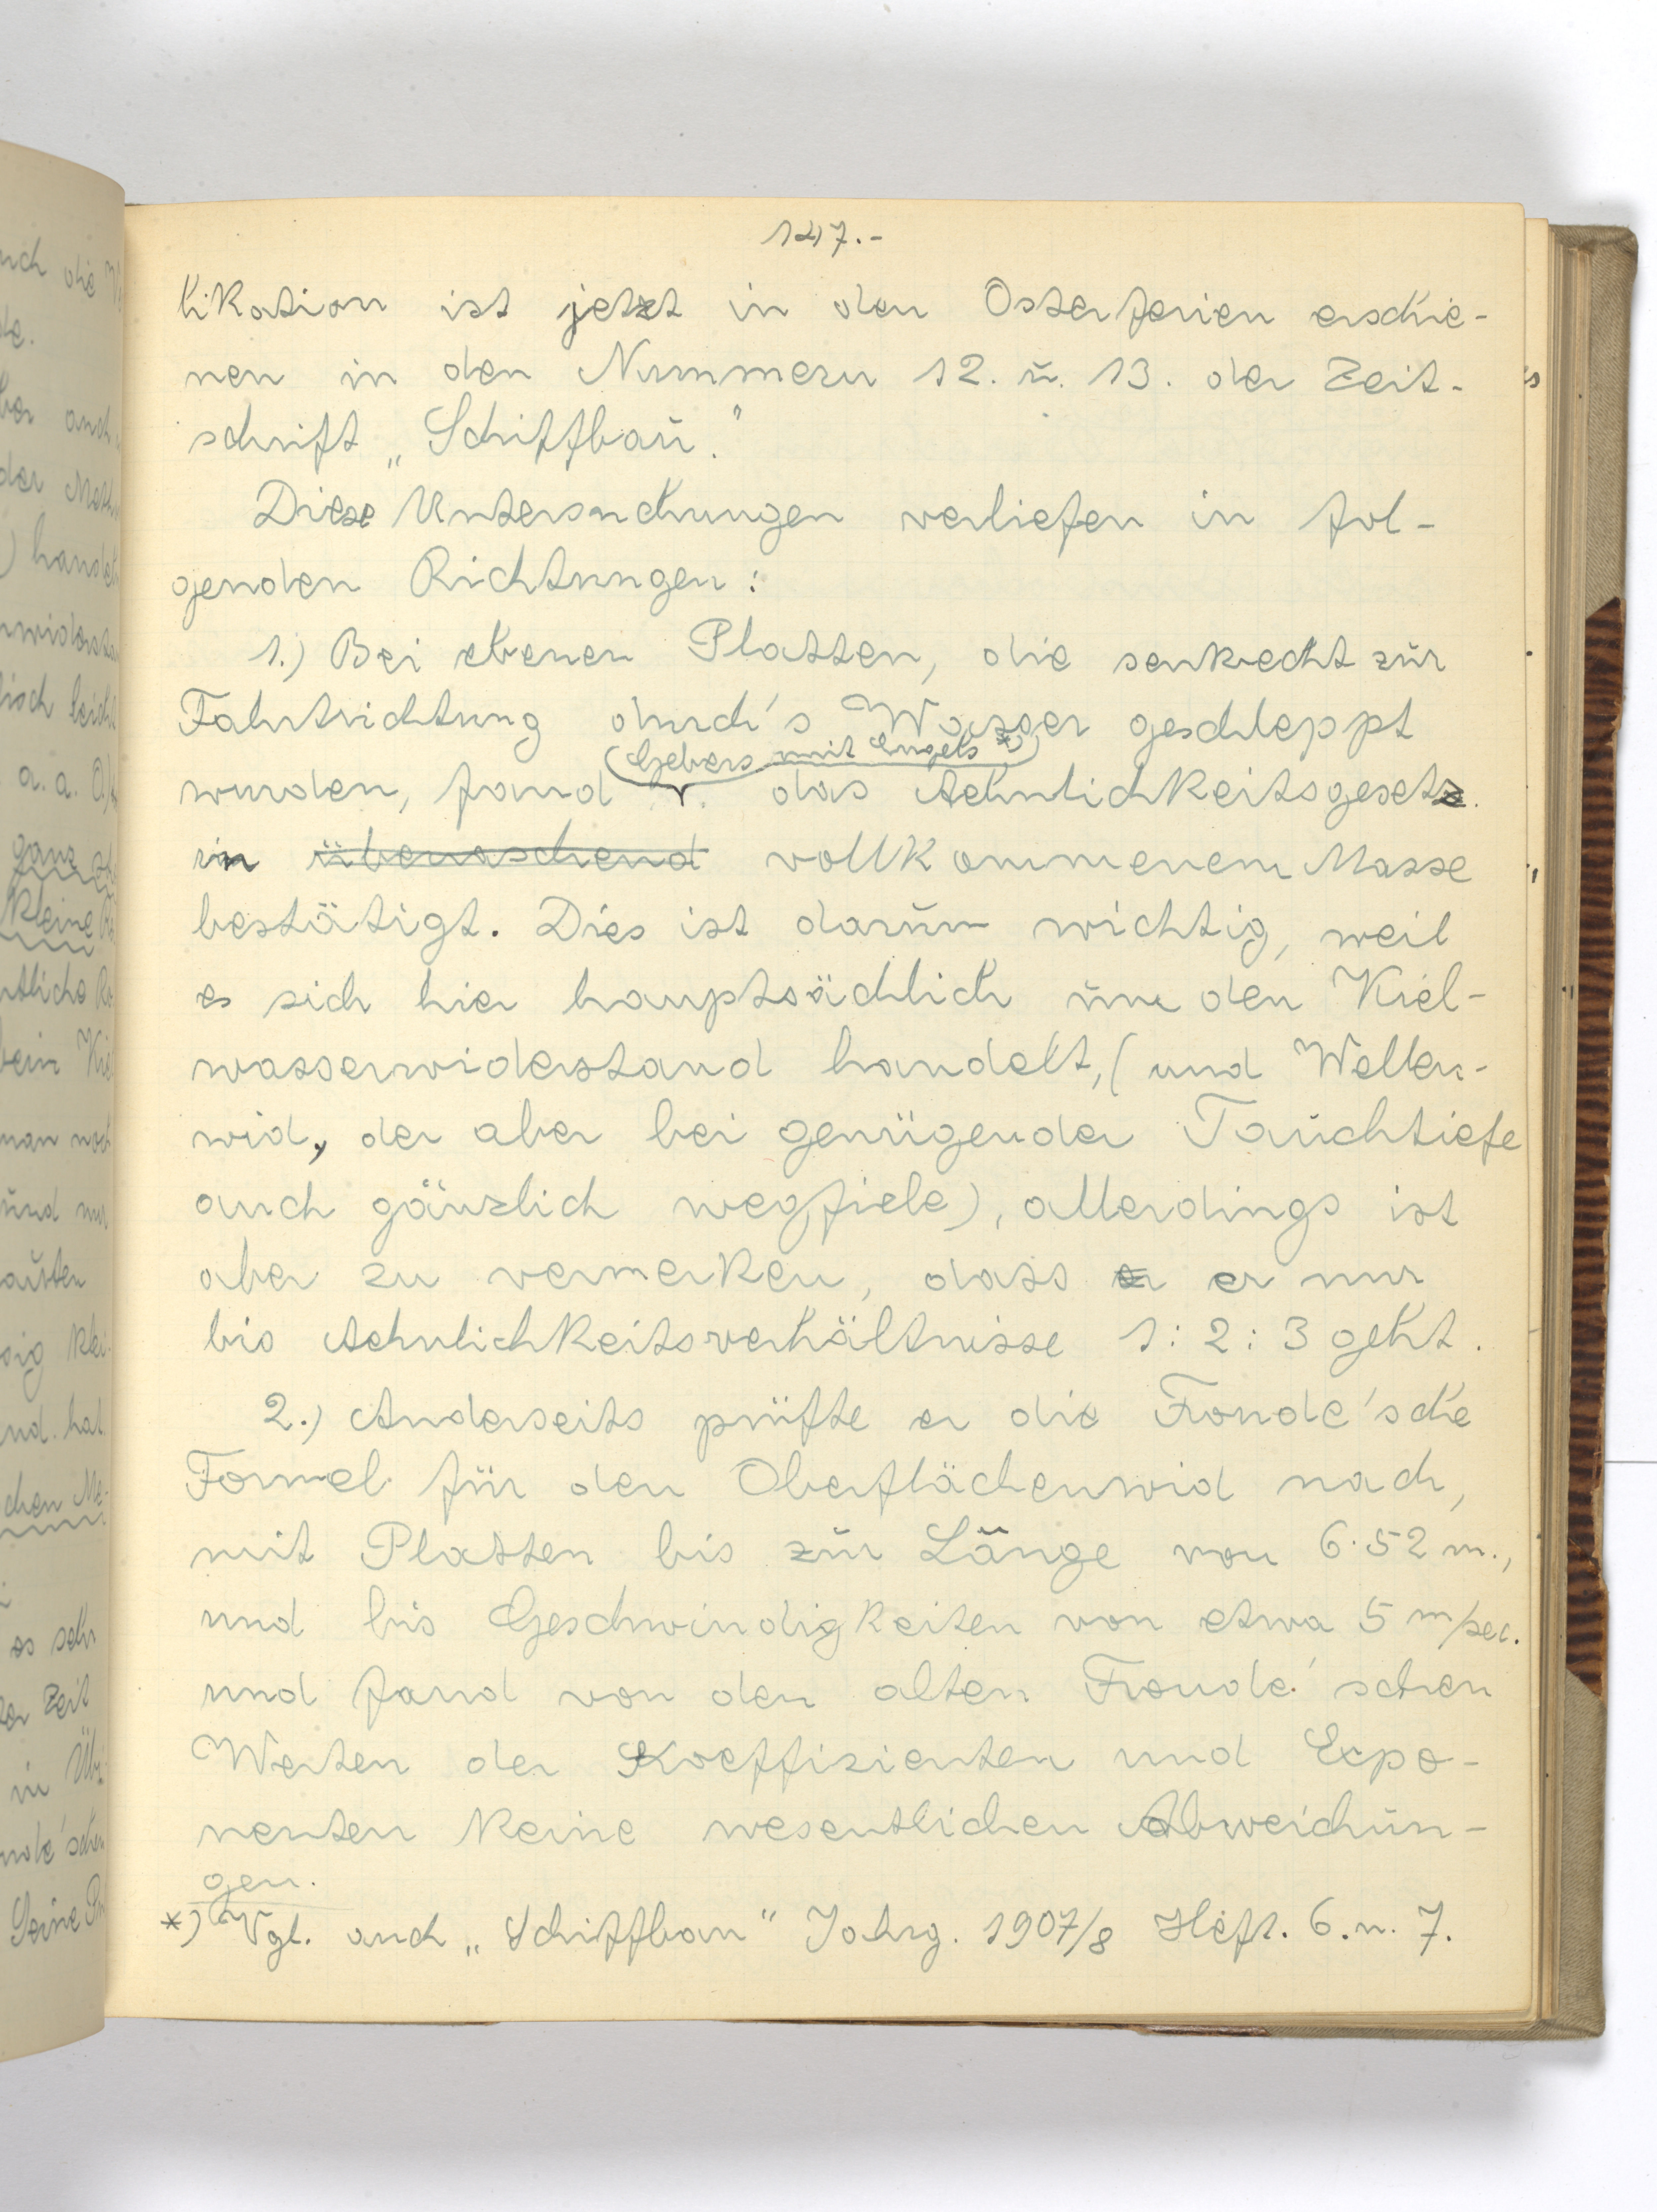 147.-
likation ist jetzt in den Osterferien erschie-
nen in den Nummern 12. u. 13. der Zeit-
schrift „Schiffbau."
Diese Untersuchungen verliefen in fol-
genden Richtungen:
1.) Bei ebenen Platten, die senkrecht zur
Fahrtrichtung durch's Wasser geschleppt
(Gebers mit Engels *))
wurden, fand das Aehnlichkeitsgesetz
in überraschend vollkommenem Masse
bestätigt. Dies ist darum wichtig, weil
es sich hier hauptsächlich um den Kiel-
wasserwiderstand handelt, (und Wellen-
wid., der aber bei genügender Tauchtiefe
auch gänzlich wegfiele), allerdings ist
aber zu vermerken, dass er nur
bis Aehnlichkeitsverhältnisse 1:2:3 geht.
2.) Anderseits prüfte er die Froude'sche
Formel für den Oberflächenwid nach,
mit Platten bis zur Länge von 6.52 m.,
und bis Geschwindigkeiten von etwa 5 m/sec.
und fand von den alten Froude'schen
Werten der Koeffizienten und Expo-
nenten keine wesentlichen Abweichun-
gen.
*) Vgl. auch „Schiffbau" Jahrg. 1907/8 Heft. 6. u. 7.